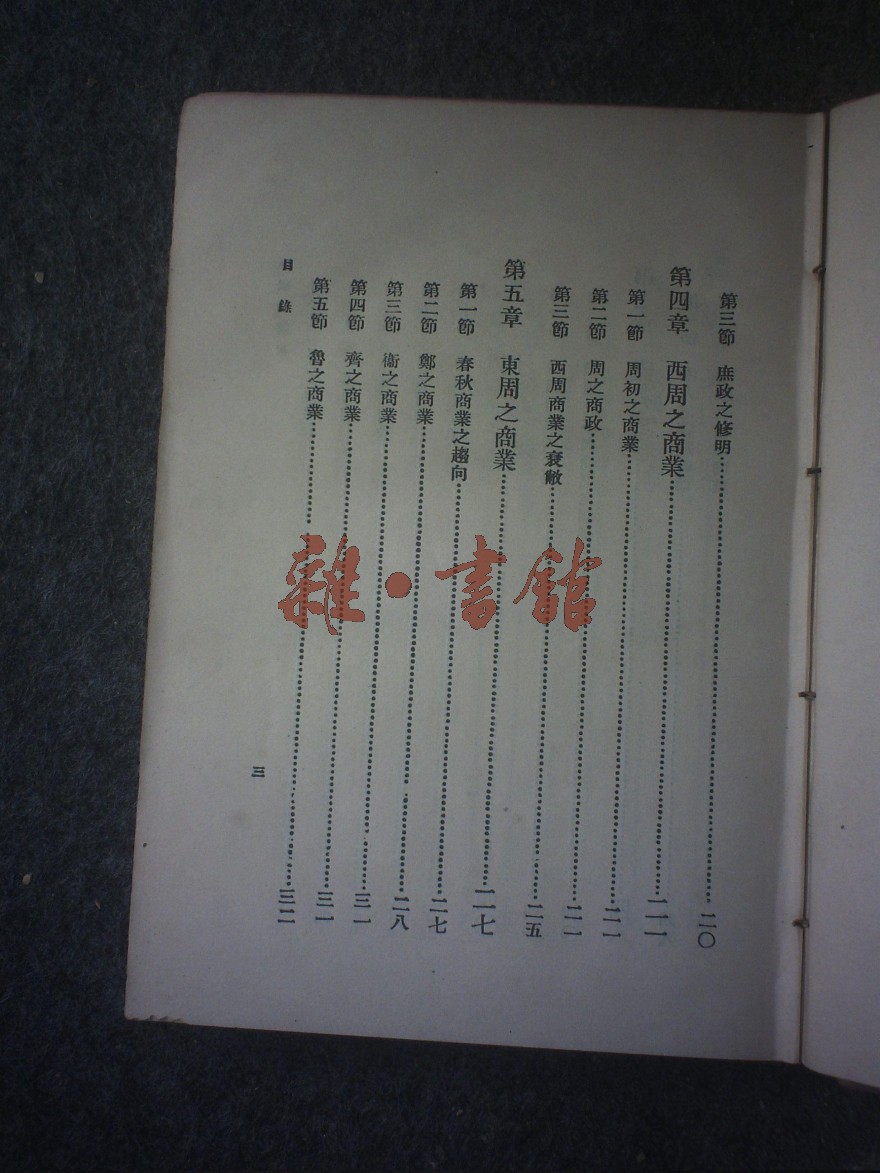 第三節　庶政之修明……二〇
第四章　西周之商業……二一
第一節　周初之商業……二一
第二節　周之商政……二一
第三節　西周商業之衰敝……二五
第五章　東周之商業……二七
第一節　春秋商業之趨向……二七
第二節　鄭之商業……二八
第三節　衞之商業……三一
第四節　齊之商業……三一
第五節　魯之商業……三二
目錄
三
雜·書館